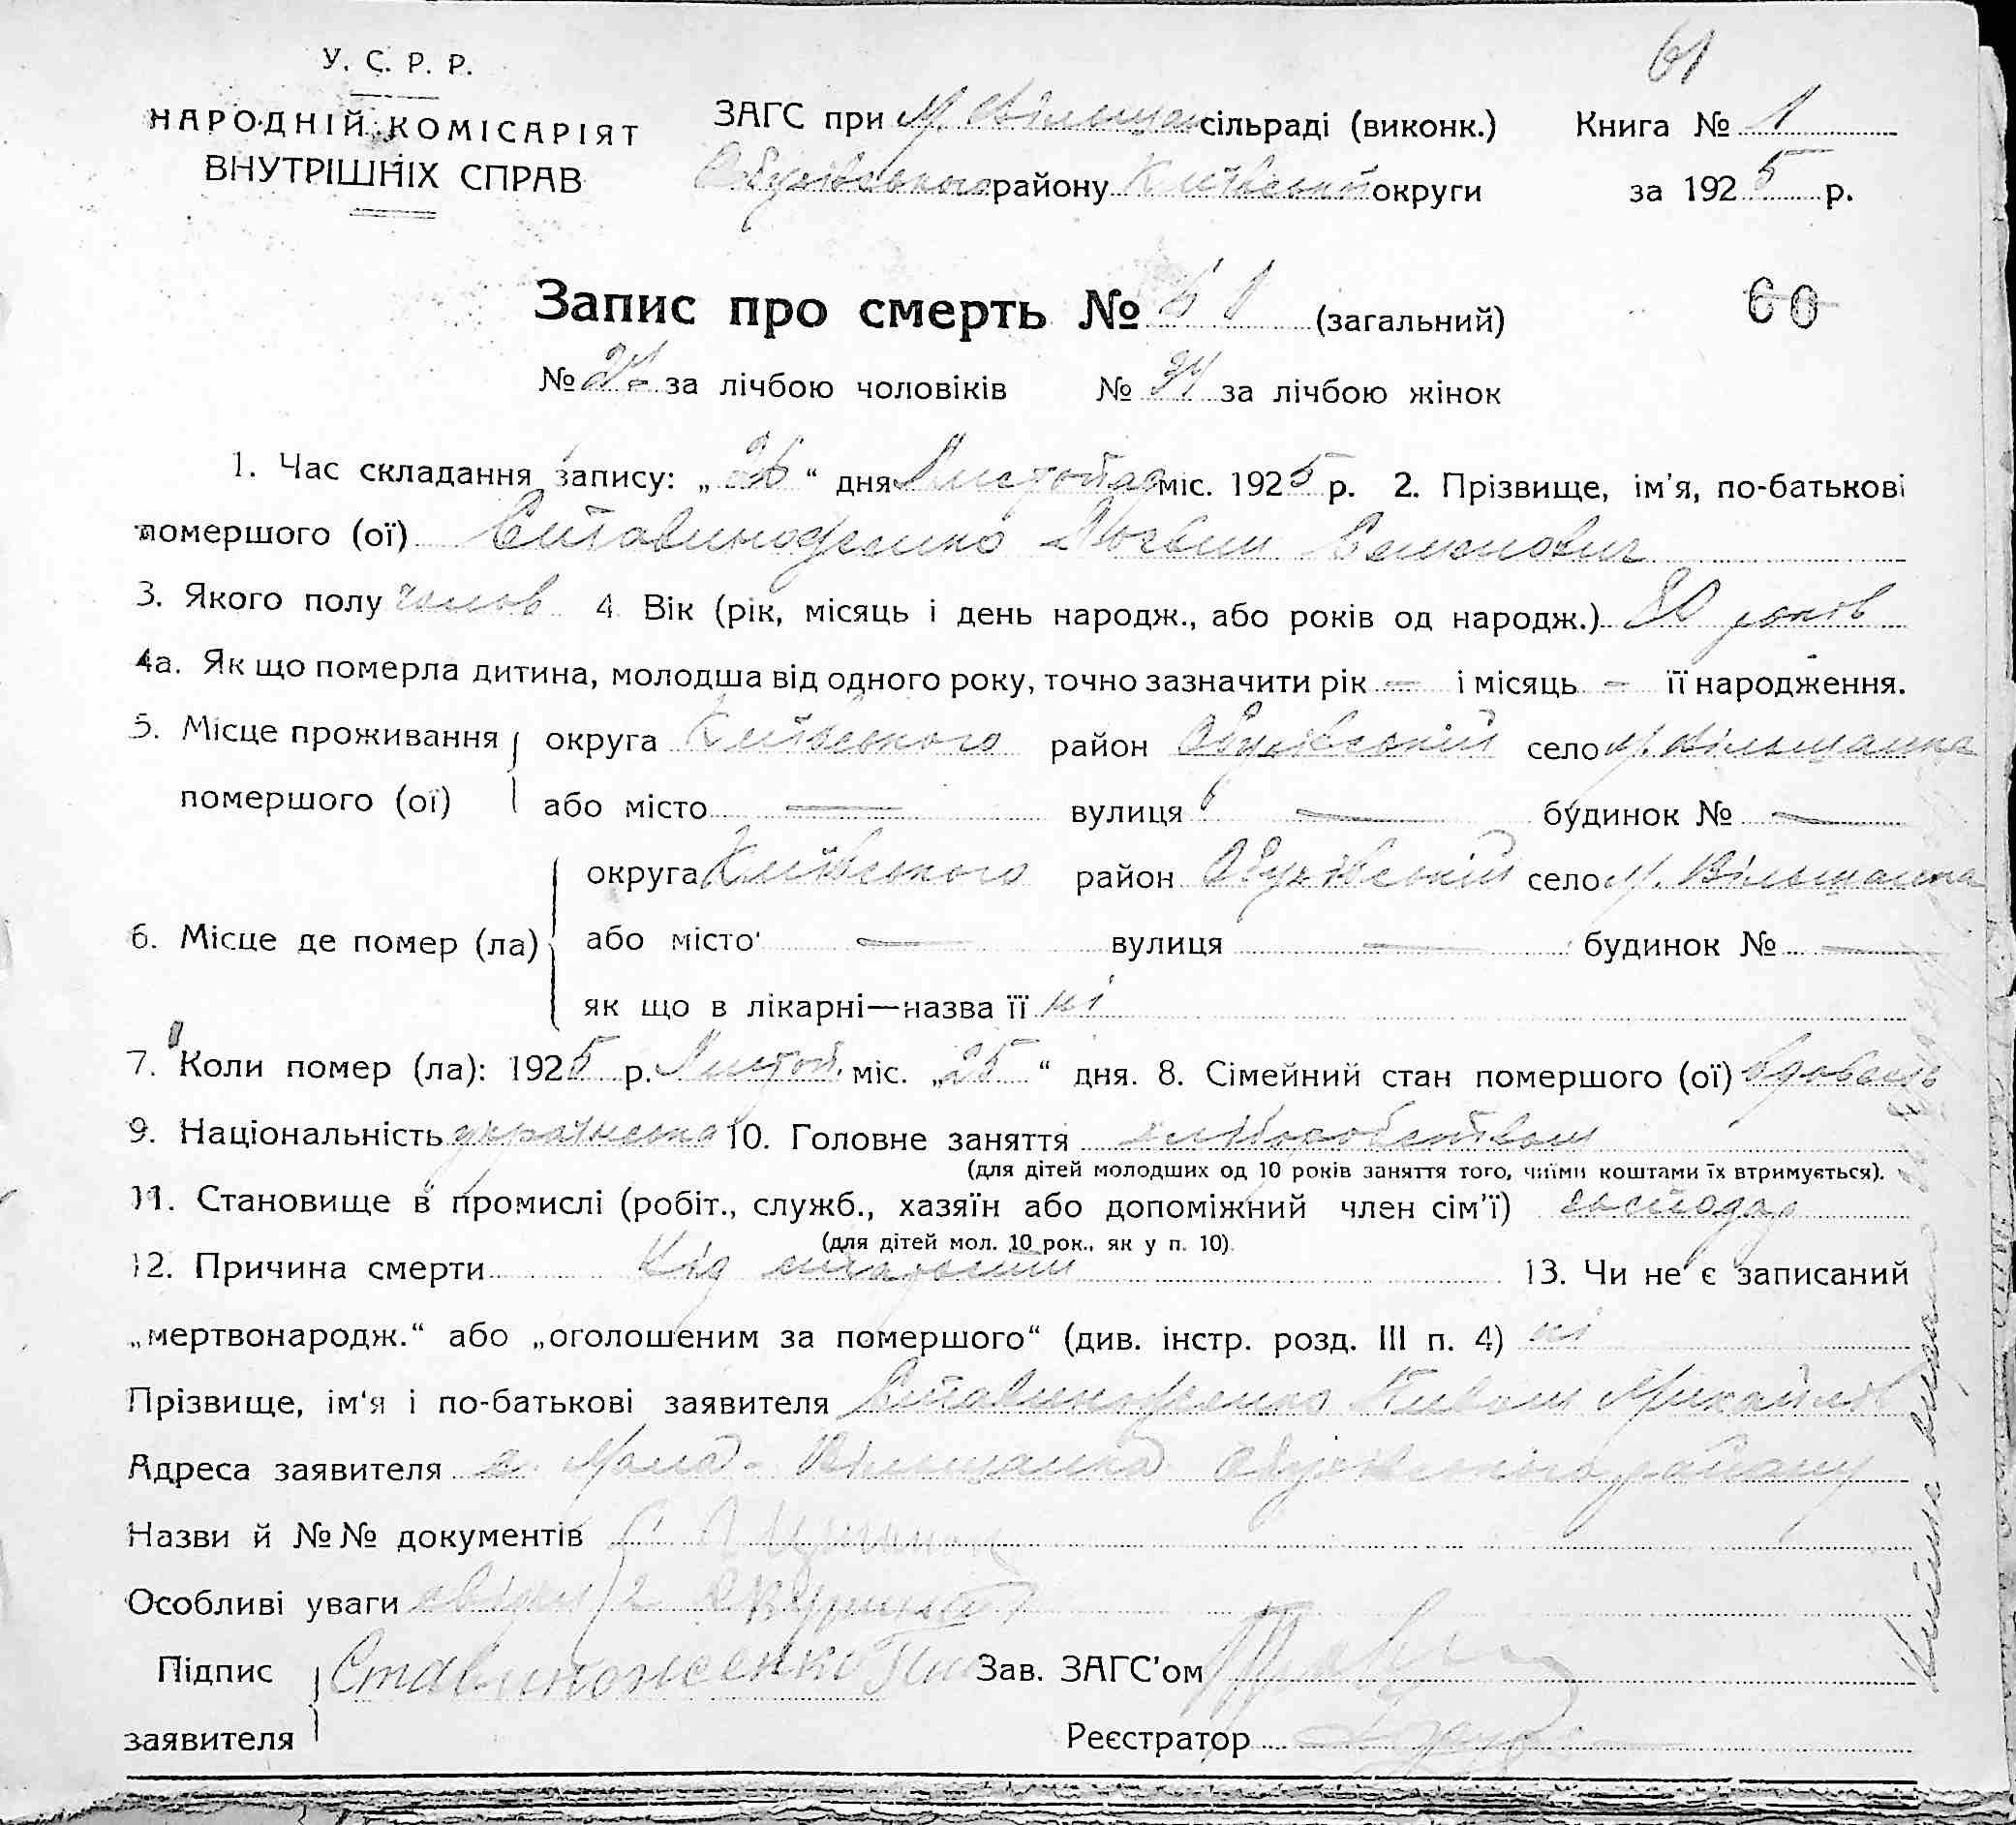 61
У. С. Р. Р.
НАРОДНІЙ КОМІСАРІЯТ
ВНУТРІШНІХ СПРАВ
ЗАГС при М. Вільщан сільраді (виконк.) Книга № 1
Обухівського району Київської округи за 1925 р.
Запис про смерть № 61 (загальний) 60
№ за лічбою чоловіків № 34 за лічбою жінок
1. Час складання запису: „26“ дня Листопад міс. 1925 р. 2. Прізвище, ім'я, по-батькові
помершого (ої) Ставиноженко Семенович
3. Якого полу чолов 4 Вік (рік, місяць і день народж., або років од народж.) 80 років
4а. Як що померла дитина, молодша від одного року, точно зазначити рік — і місяць — її народження.
5. Місце проживання округа Київського район Обухівський село М. Вільщанка
помершого (ої) або місто — вулиця — будинок № —
округа Київського район Обухівський село М. Вільщанка
6. Місце де помер (ла) або місто — вулиця — будинок № —
як що в лікарні—назва її ні
7. Коли помер (ла): 1925 р. Листоп. міс. „25“ дня. 8. Сімейний стан помершого (ої) вдовець
9. Національність українець 10. Головне заняття хліборобством
(для дітей молодших од 10 років заняття того, чиїми коштами їх втримується).
11. Становище в промислі (робіт., служб., хазяїн або допоміжний член сім'ї) господар
(для дітей мол. 10 рок., як у п. 10).
12. Причина смерти Від старости 13. Чи не є записаний
„мертвонародж.“ або „оголошеним за помершого“ (див. інстр. розд. III п. 4) ні
Прізвище, ім'я і по-батькові заявителя Ставиноженко Михайлов
Адреса заявителя с. Мала-Вільщанка Обухівського району
Назви й №№ документів
Особливі уваги
Підпис Ставиноженко Зав. ЗАГС'ом
заявителя Реєстратор